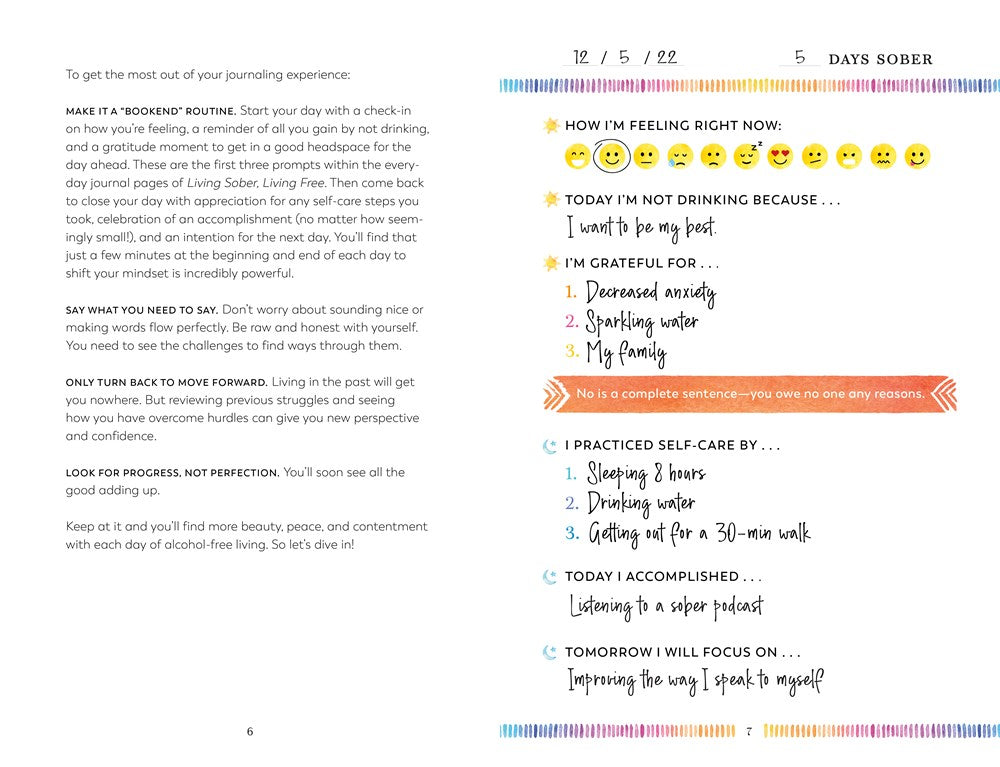 To get the most out of your journaling experience:
MAKE IT A “BOOKEND” ROUTINE. Start your day with a check-in
on how you’re feeling, a reminder of all you gain by not drinking,
and a gratitude moment to get in a good headspace for the
day ahead. These are the first three prompts within the every-
day journal pages of Living Sober, Living Free. Then come back
to close your day with appreciation for any self-care steps you
took, celebration of an accomplishment (no matter how seem-
ingly small!), and an intention for the next day. You’ll find that
just a few minutes at the beginning and end of each day to
shift your mindset is incredibly powerful.
SAY WHAT YOU NEED TO SAY. Don’t worry about sounding nice or
making words flow perfectly. Be raw and honest with yourself.
You need to see the challenges to find ways through them.
ONLY TURN BACK TO MOVE FORWARD. Living in the past will get
you nowhere. But reviewing previous struggles and seeing
how you have overcome hurdles can give you new perspective
and confidence.
LOOK FOR PROGRESS, NOT PERFECTION. You’ll soon see all the
good adding up.
Keep at it and you’ll find more beauty, peace, and contentment
with each day of alcohol-free living. So let’s dive in!
6
12 / 5 / 22 5 DAYS SOBER
HOW I’M FEELING RIGHT NOW:
z z z
TODAY I’M NOT DRINKING BECAUSE . . .
I want to be my best.
I’M GRATEFUL FOR . . .
1. Decreased anxiety
2. Sparkling water
3. My family
No is a complete sentence—you owe no one any reasons.
I PRACTICED SELF-CARE BY . . .
1. Sleeping 8 hours
2. Drinking water
3. Getting out for a 30-min walk
TODAY I ACCOMPLISHED . . .
Listening to a sober podcast
TOMORROW I WILL FOCUS ON . . .
Improving the way I speak to myself
7